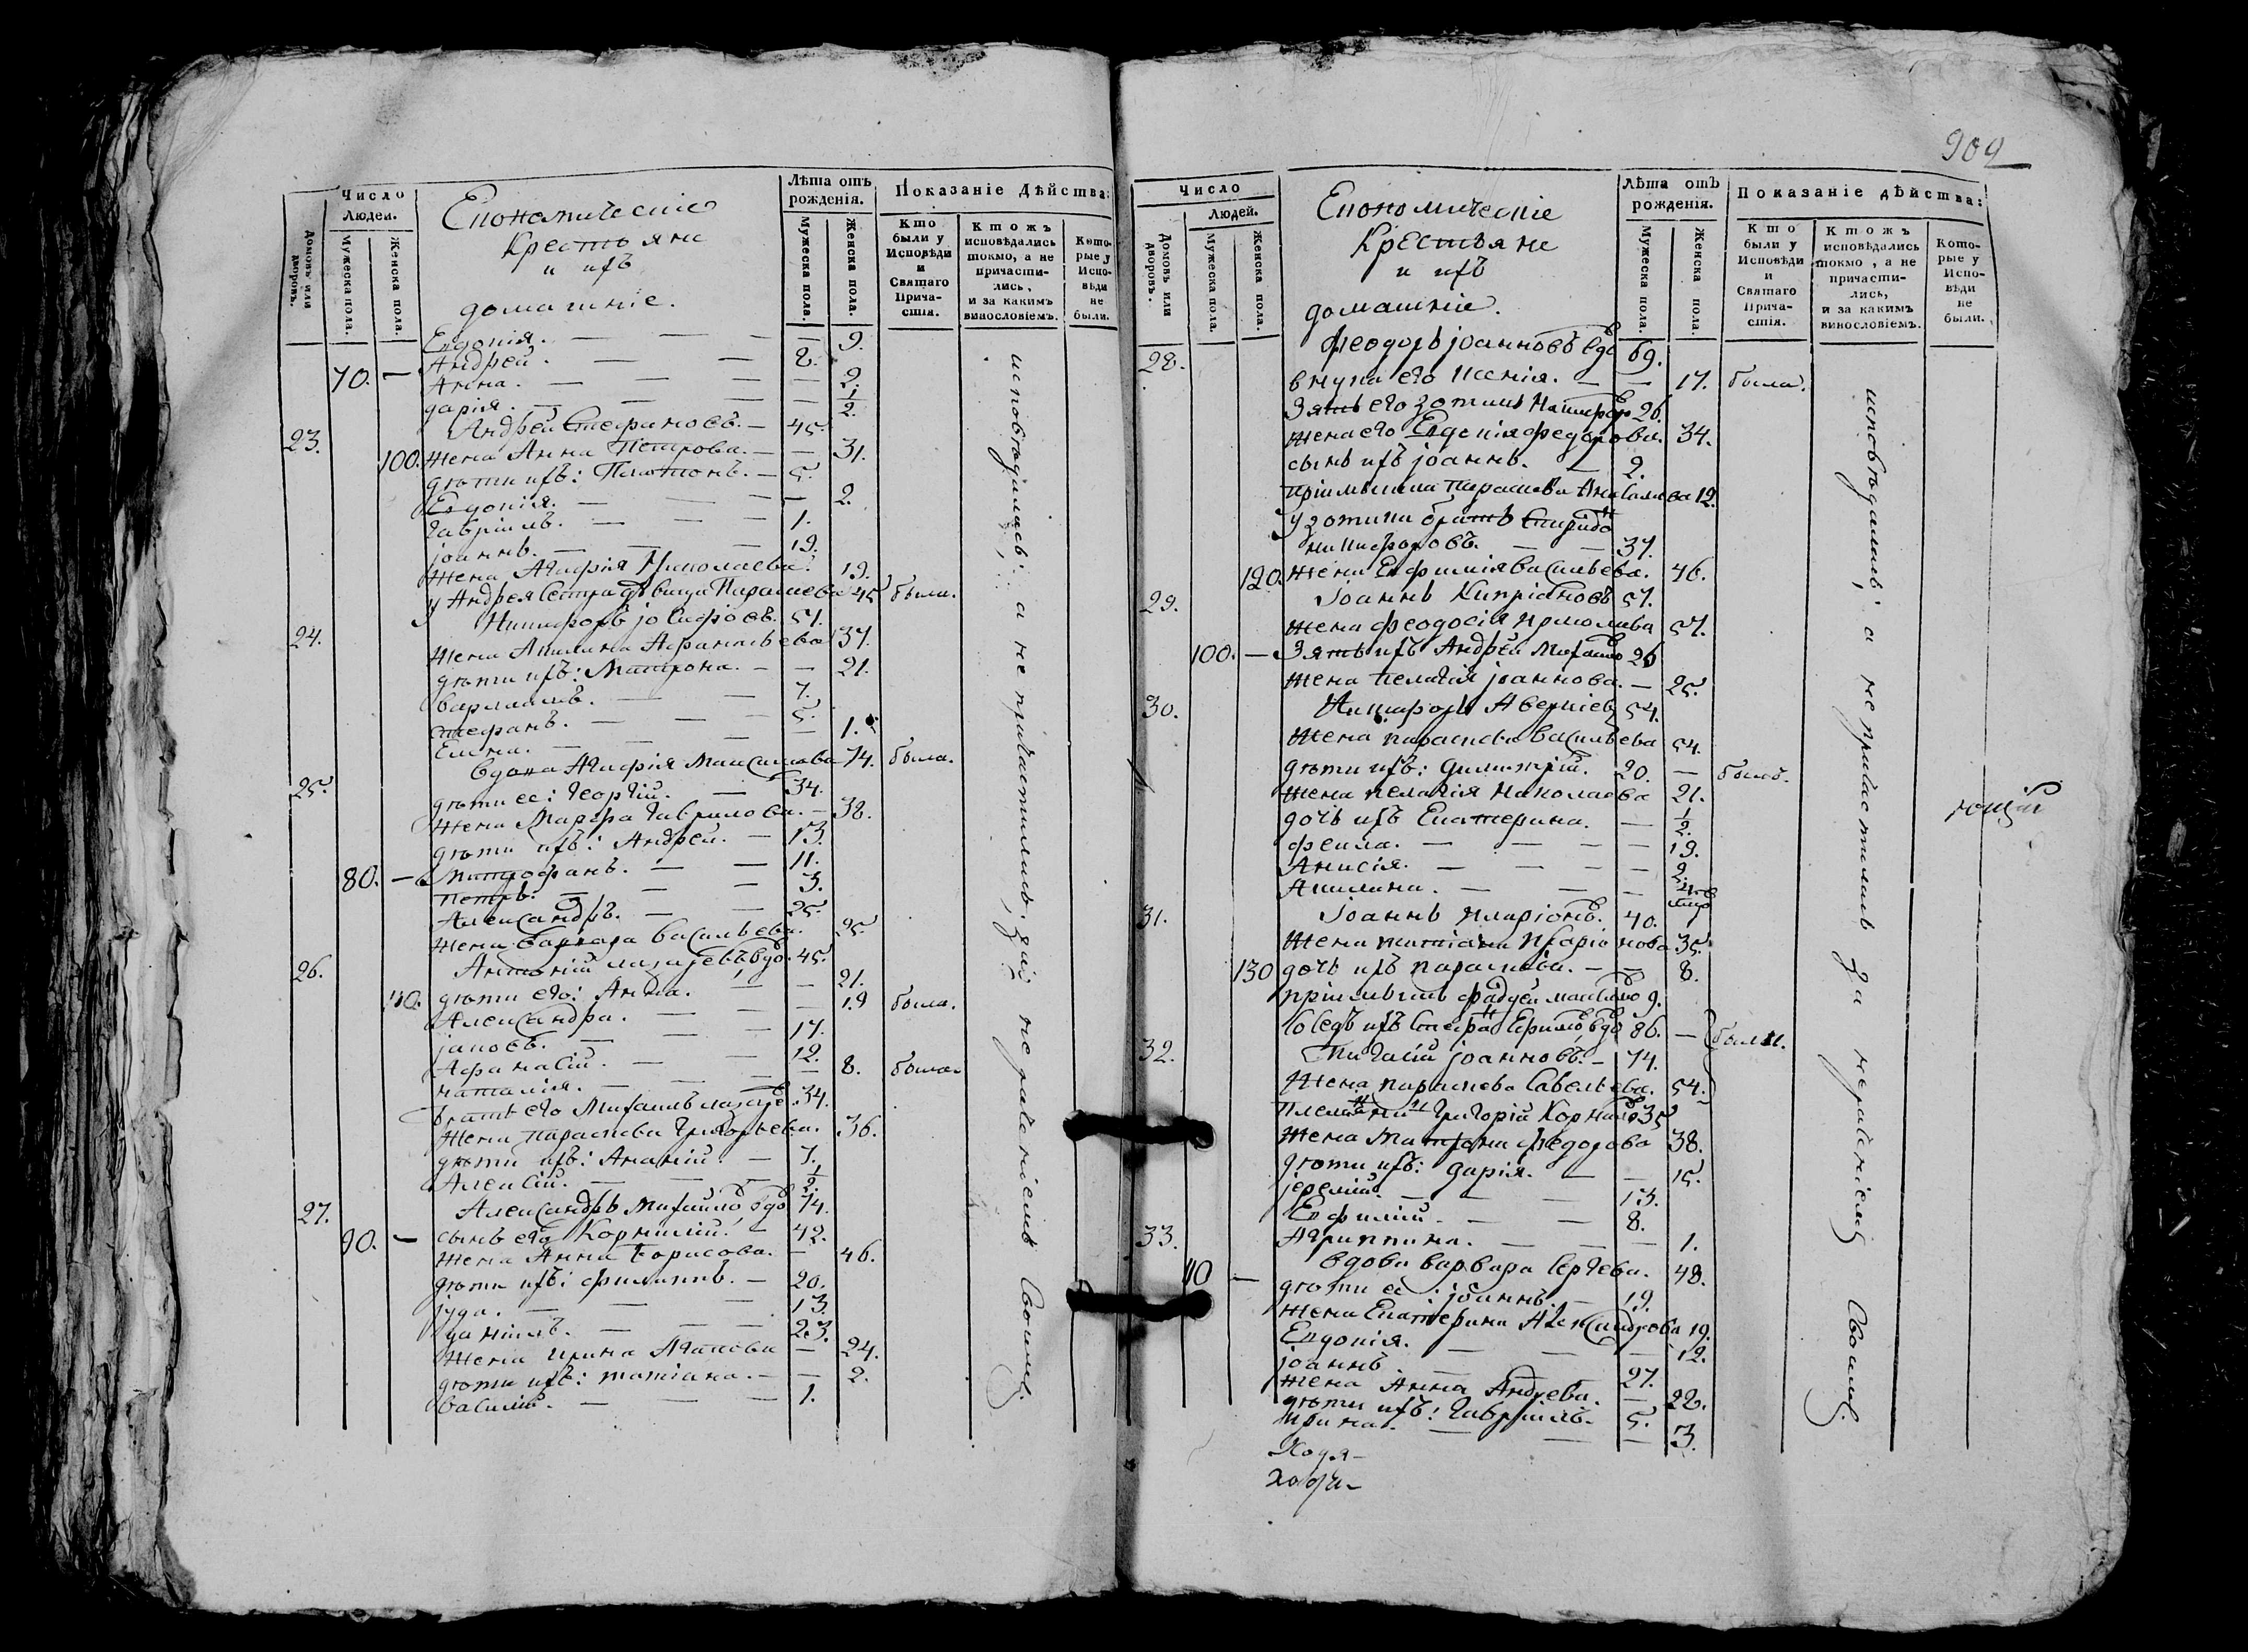 909
Число
Людей.
Домовъ или дворовъ.
Мужеска пола.
Женска пола.
Економическіе
Крестьяне
и ихъ
домашніе.
Лѣта отъ рожденія.
Мужеска пола.
Женска пола.
Показаніе Дѣйства:
Кто были у Исповѣди и Святаго Причастія.
Ктожъ исповѣдались токмо, а не причастились, и за какимъ винословіемъ.
Которые у Исповѣди не были.
Евдокія. — — — — 9.
Андрей. — — — 8.
70. — Анна. — — — — 2.
дарія. — — — — 1/2.
23. Андрей Стефановъ. — 45.
100. жена Анна Петрова. — — 31.
дѣти ихъ: Платонъ. — 5.
Евдокія. — — — — 2.
Гавріилъ. — — — 1.
іоаннъ. — — — 19.
жена Агафія Николаева. 19.
у Андрея сестра дѣвица Параскева 45 была.
24. Никифоръ іосифовъ. 57.
жена Акилина Афанасьева 37.
дѣти ихъ: Матрона. — — 21.
варлаамъ. — — 7.
стефанъ. — — — 5.
Елена. — — — 1.
25. вдова Агафія Максимова 74. была.
дѣти ее: Георгій. — 34.
жена Марфа Гаврилова. — 38.
дѣти ихъ: Андрей. — 13.
80. — митрофанъ. — — 11.
петръ. — — — 3.
Александръ. — — 25.
жена варвара васильева. 25.
26. Антоній лазаревъ вдо. 45.
110. дѣти его: Анна. — — 21.
Александра. — — — 19 была.
іаковъ. — — — 17.
Афанасій. — — — 12.
наталія. — — — — 8. была.
братъ его Михаилъ лазаре. 34.
жена параскева Григорьева. 36.
дѣти ихъ: Ананій. — 7.
Алексій. — — — 1/2.
27. Александръ Михайло вдо. 74.
90. — сынъ его Корнилій. — 42.
жена Анна Борисова. — 46.
дѣти ихъ: филиппъ. — 20.
іуда. — — — 13.
даніилъ. — — — 23.
жена ирина Агапова — 24.
дѣти ихъ: татіана. — — 2.
василій. — — — 1.
исповѣдались; а не причастились, за нераченіемъ своимъ.
Число
Людей.
Домовъ или дворовъ.
Мужеска пола.
Женска пола.
Економическіе
Крестьяне
и ихъ
домашніе.
Лѣта отъ рожденія.
Мужеска пола.
Женска пола.
Показаніе дѣйства:
Кто были у Исповѣди и Святаго Причастія.
Ктожъ исповѣдались токмо, а не причастились, и за какимъ винословіемъ.
Которые у Исповѣди не были.
28. феодоръ іоанновъ вдо 69.
внука его Ксенія. — — 17. была.
Зять его зотикъ Никифоро 26.
жена его Евдокія федорова. 34.
сынъ ихъ іоаннъ. — 2.
12.
у зотика братъ Спиридо
никифоровъ. — — 37.
120. жена Евфимія васильева. 46.
29. іоаннъ Кипріановъ 57.
жена феодосія 57.
100. — Зять ихъ Андрей Михайло 26
жена пелагія іоаннова. — 25.
30. Никифоръ Аверкіев 54.
жена параскева васильева 54.
дѣти ихъ: димитрій. 20. — былъ.
жена пелагія Николаева 21.
дочь ихъ Екатерина. — 1/2.
фекла. — — — — 19.
Анисія. — — — — 2.
Акилина. — — —
31. іоаннъ иларіоно. 40.
жена татіана 35.
130 дочь ихъ параскева. — — 8.
пріимышъ фадѣй максимо 9.
86. — были.
32. іоанновъ. — 74.
жена параскева Савельева. 54.
племянни Григорій Корнило 35
жена матрона федорова 38.
дѣти ихъ: дарія. — — 15.
іеремій. — — — 13.
Евфимій. — — 8.
Агриппина. — — — 1.
33. вдова варвара сергева. 48.
110 — дѣти ее: іоаннъ. — 19.
жена Екатерина Александрова 19.
Евдокія. — — — 12.
іоаннъ. — — — 27.
жена Анна Андреева. — 22.
дѣти ихъ: Гавріилъ. 5.
ирина. — — — 3.
исповѣдались; а не причастились за нераченіемъ своимъ.